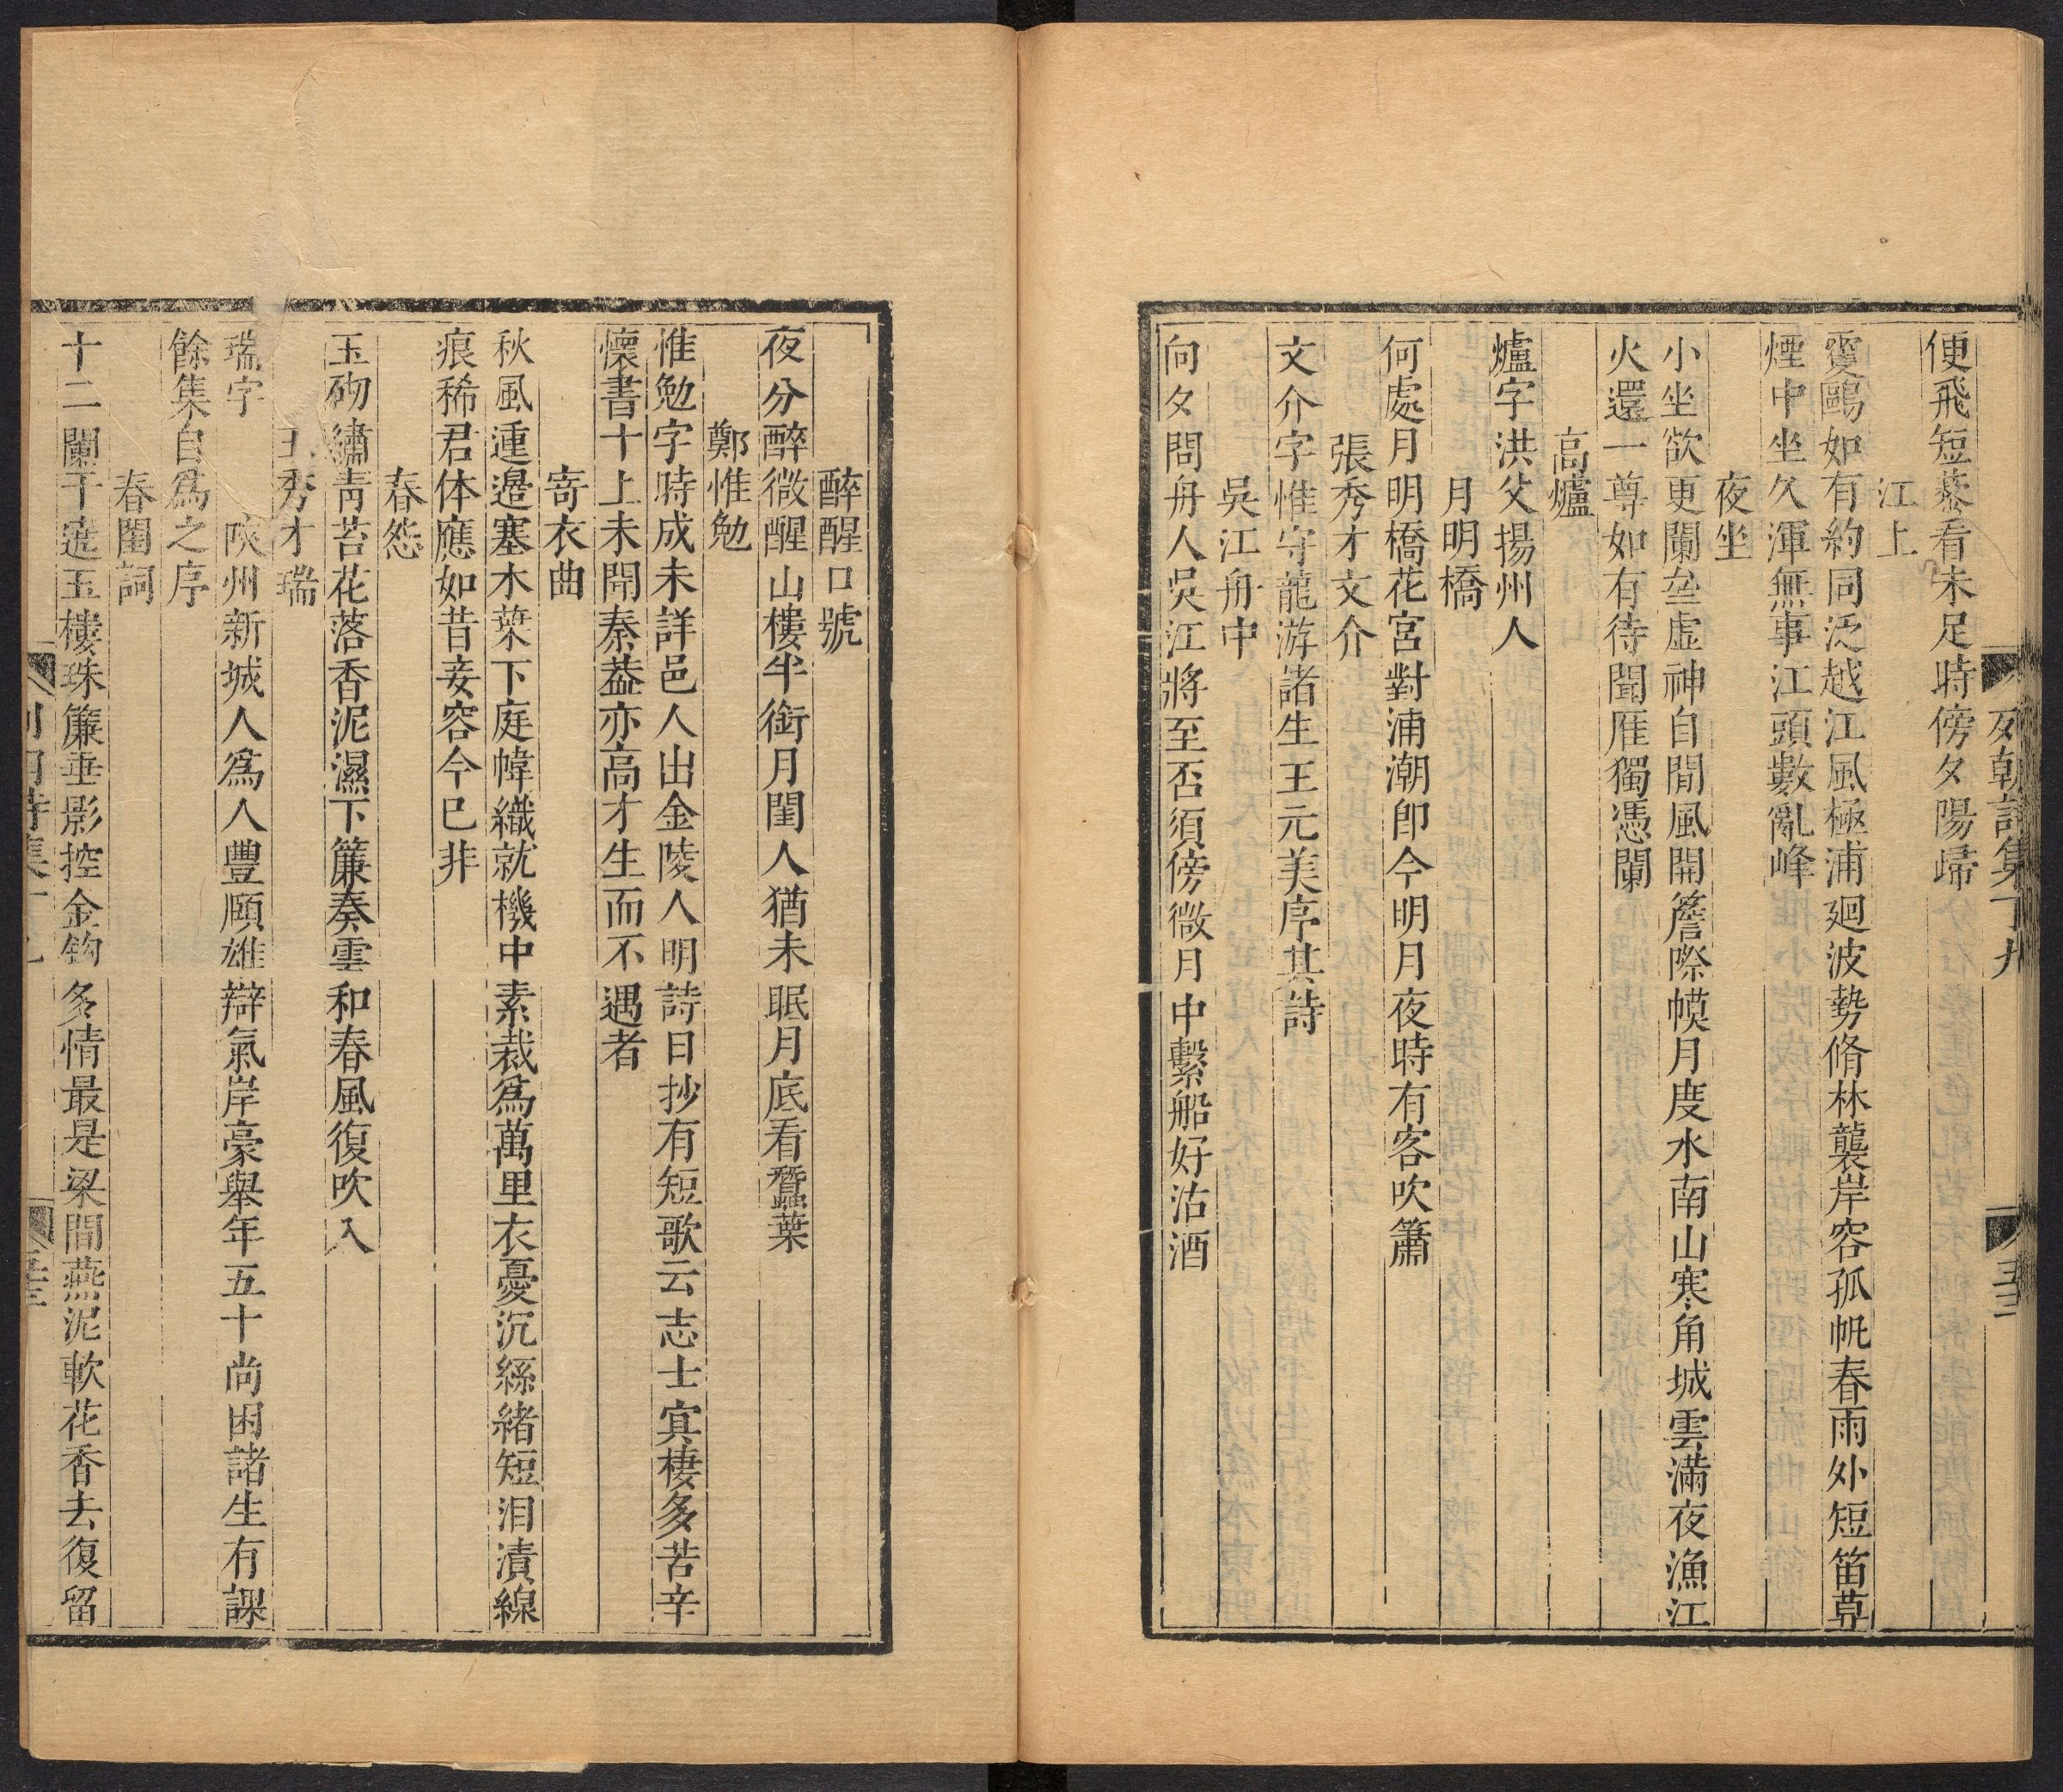 列朝詩集丁九
便飛短莎看未足時傍夕陽歸
江上
愛鷗如有約同泛越江風極浦廻波勢脩林襲岸容孤帆春雨外短笛草
煙中坐久渾無事江頭數亂峰
夜坐
小坐欲更闌坐虛神自閒風開簷際幙月度水南山寒角城雲滿夜漁江
火還一尊如有待聞雁獨憑闌
高爐
爐字洪父揚州人
月明橋
何處月明橋花宮對浦潮即今明月夜時有客吹簫
張秀才文介
文介字惟守龍游諸生王元美序其詩
吳江舟中
向夕問舟人吳江將至否須傍微月中繫船好沽酒
醉醒口號
夜分醉微醒山樓半銜月閨人猶未眠月底看蠶葉
鄭惟勉
惟勉字時成未詳邑人出金陵人明詩日抄有短歌云志士寘棲多苦辛
懷書十上未開秦葢亦高才生而不遇者
寄衣曲
秋風連邊塞木葉下庭幃織就機中素裁為萬里衣憂沉絲緒短泪漬線
痕稀君体應如昔妾容今已非
春怨
玉砌繡青苔花落香泥濕下簾奏雲和春風復吹入
秀才瑞
瑞字陝州新城人為人豐頤雄辯氣岸豪舉年五十尚困諸生有課
餘集自為之序
春閨詞
十二闌干遶玉樓珠簾垂影控金鈎多情最是梁間燕泥軟花香去復留